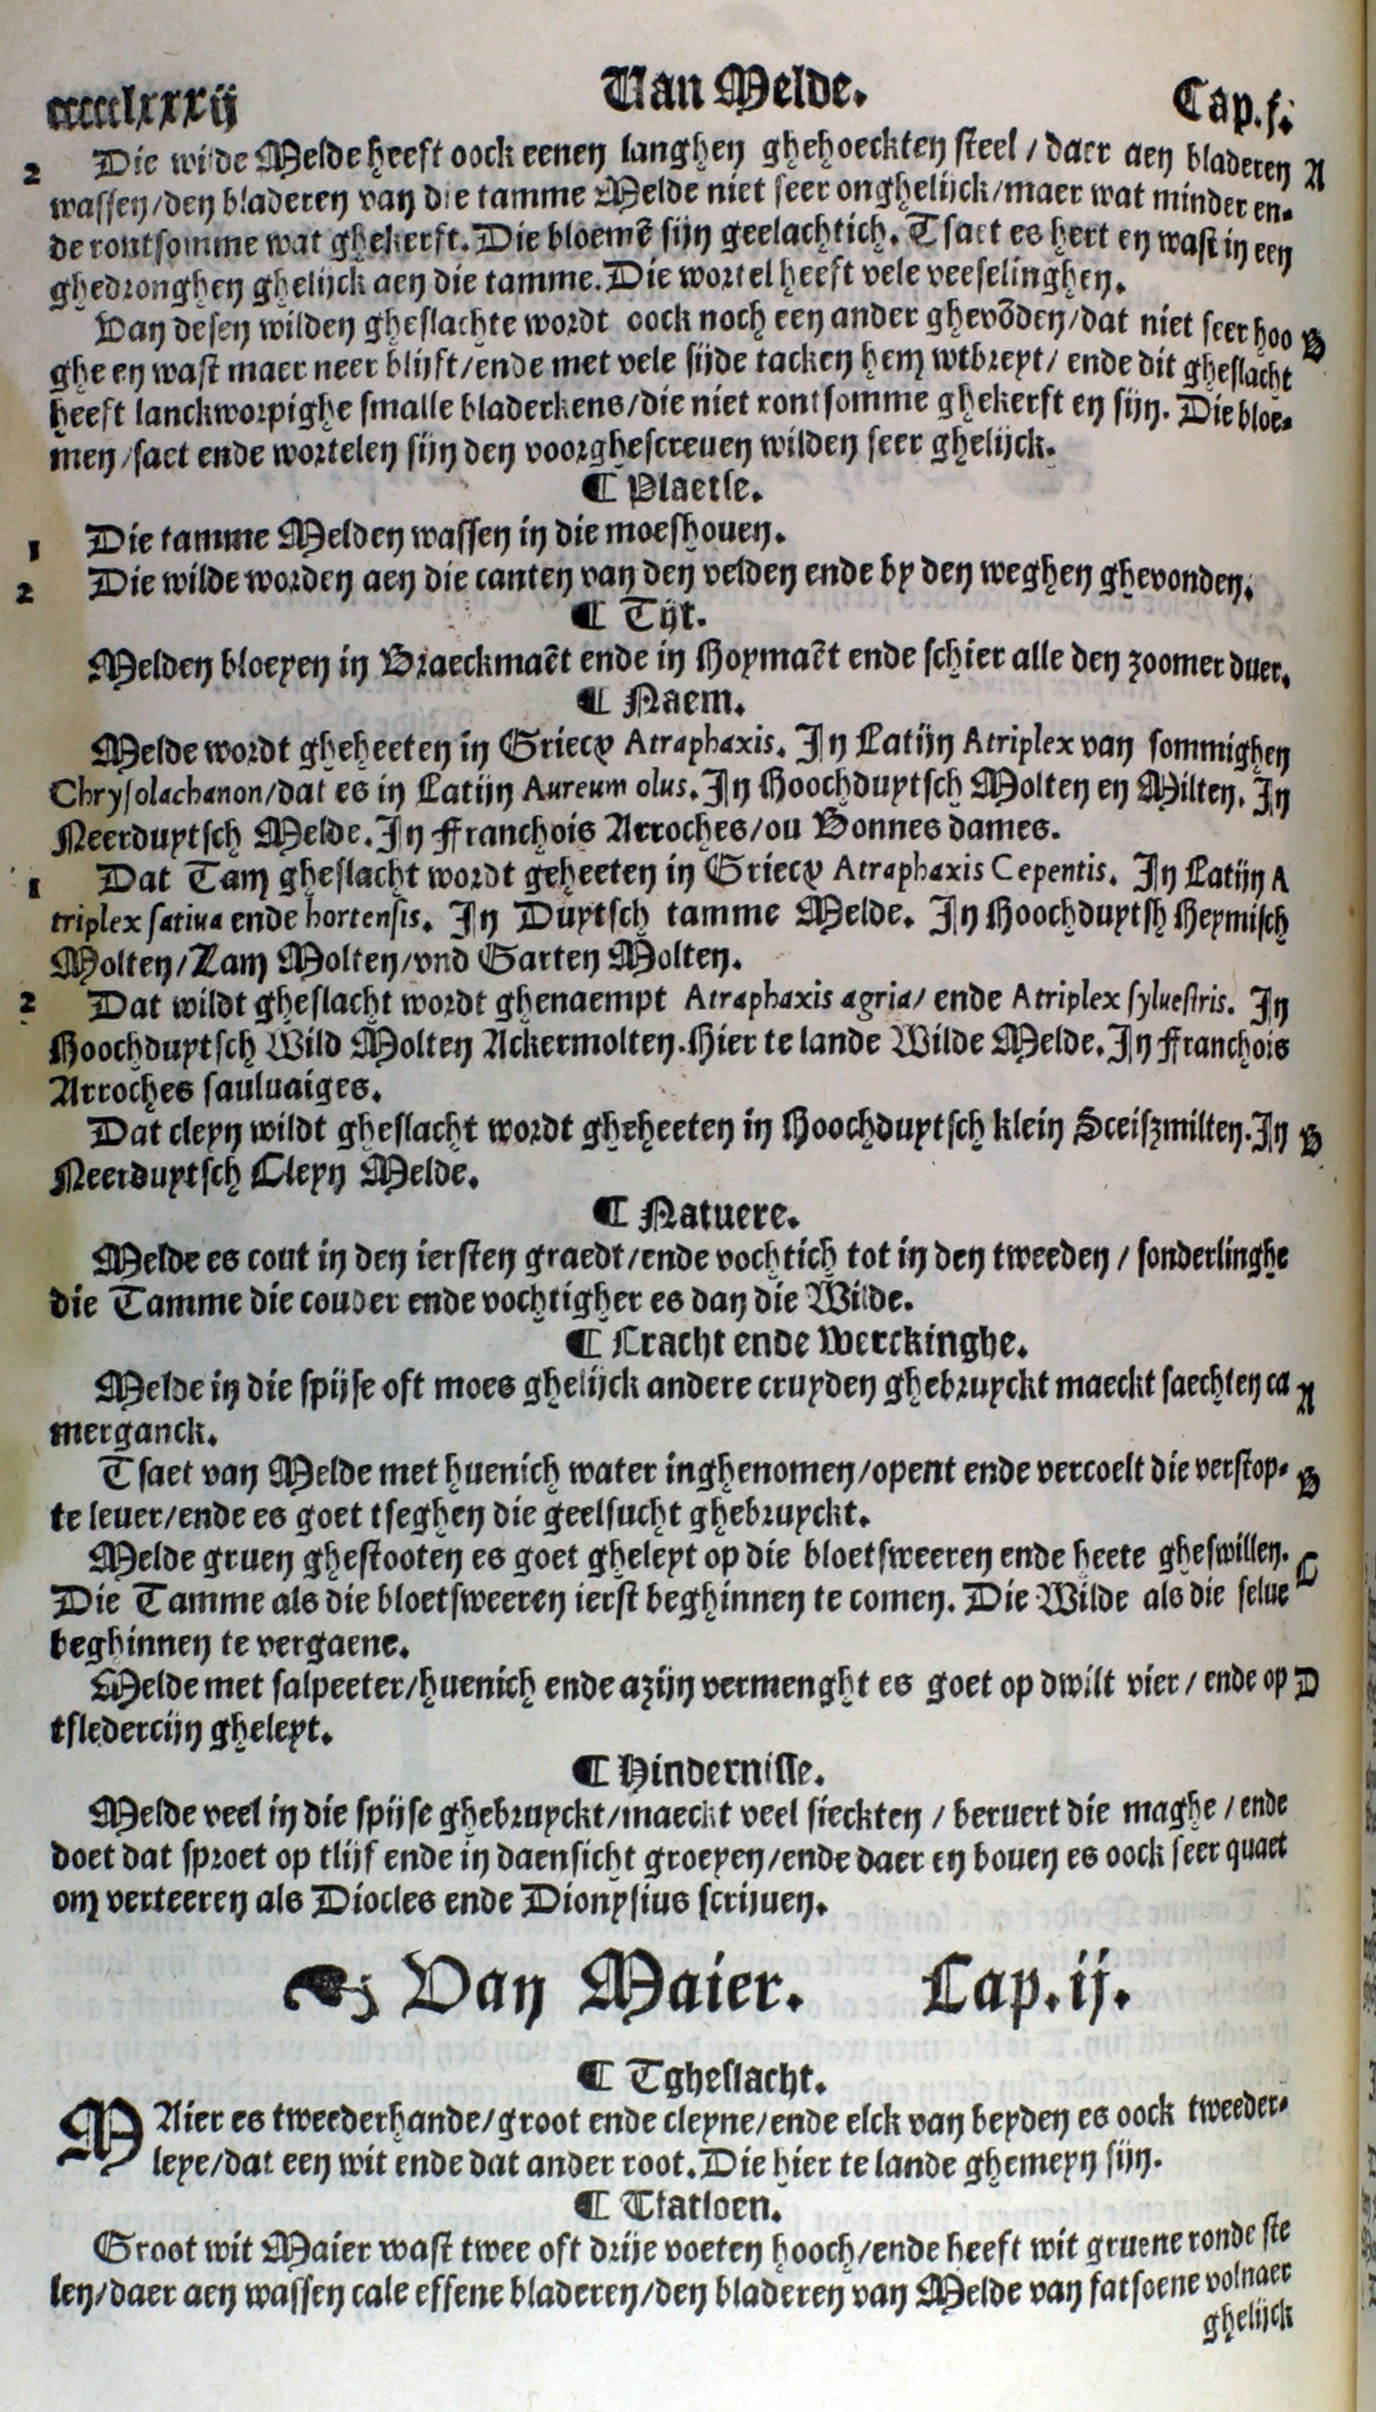 ccccclxxxij Van Melde. Cap.j.
2 Die wilde Melde heeft oock eenen langhen ghehoeckten steel / daer aen bladeren A
wassen/den bladeren van die tamme Melde niet seer onghelijck/maer wat minder en-
de rontsomme wat ghekerft. Die bloemē sijn geelachtich. Tsaet es hert en wast in een
ghedronghen ghelijck aen die tamme. Die wortel heeft vele veeselinghen.
Van desen wilden gheslachte wordt oock noch een ander ghevōden/dat niet seer hoo B
ghe en wast maer neer blijft/ende met vele sijde tacken hem wtbreyt/ ende dit gheslacht
heeft lanckworpighe smalle bladerkens/die niet rontsomme ghekerft en sijn. Die bloe-
men/saet ende wortelen sijn den voorghescreuen wilden seer ghelijck.
¶ Plaetse.
1 Die tamme Melden wassen in die moeshouen.
2 Die wilde worden aen die canten van den velden ende by den weghen ghevonden.
¶ Tijt.
Melden bloeyen in Braeckmaēt ende in Hoymaēt ende schier alle den zoomer duer.
¶ Naem.
Melde wordt gheheeten in Griecx Atraphaxis. In Latijn Atriplex van sommighen
Chrysolachanon/dat es in Latijn Aureum olus. In Hoochduytsch Molten en Milten. In
Neerduytsch Melde. In Franchois Arroches/ou Bonnes dames.
1 Dat Tam gheslacht wordt geheeten in Griecx Atraphaxis Cepentis. In Latijn A
triplex satiua ende hortensis. In Duytsch tamme Melde. In Hoochduytsh Heymisch
Molten/Zam Molten/vnd Garten Molten.
2 Dat wildt gheslacht wordt ghenaempt Atraphaxis agria/ ende Atriplex syluestris. In
Hoochduytsch Wild Molten Ackermolten. Hier te lande Wilde Melde. In Franchois
Arroches sauluaiges.
Dat cleyn wildt gheslacht wordt gheheeten in Hoochduytsch klein Sceiszmilten. In B
Neerduytsch Cleyn Melde.
¶ Natuere.
Melde es cout in den iersten graedt/ende vochtich tot in den tweeden / sonderlinghe
die Tamme die couder ende vochtigher es dan die Wilde.
¶ Cracht ende Werckinghe.
Melde in die spijse oft moes ghelijck andere cruyden ghebruyckt maeckt saechten ca A
merganck.
Tsaet van Melde met huenich water inghenomen/opent ende vercoelt die verstop- B
te leuer/ende es goet tseghen die geelsucht ghebruyckt.
Melde gruen ghestooten es goet gheleyt op die bloetsweeren ende heete gheswillen. C
Die Tamme als die bloetsweeren ierst beghinnen te comen. Die Wilde als die selue
beghinnen te vergaene.
Melde met salpeeter/huenich ende azijn vermenght es goet op dwilt vier / ende op D
tfledercijn gheleyt.
¶ Hindernisse.
Melde veel in die spijse ghebruyckt/maeckt veel sieckten / beruert die maghe / ende
doet dat sproet op tlijf ende in daensicht groeyen/ende daer en bouen es oock seer quaet
om verteeren als Diocles ende Dionysius scrijuen.
☚ Van Maier. Cap.ij.
¶ Tgheslacht.
MAier es tweederhande/groot ende cleyne/ende elck van beyden es oock tweeder-
leye/dat een wit ende dat ander root. Die hier te lande ghemeyn sijn.
¶ Tfatsoen.
Groot wit Maier wast twee oft drije voeten hooch/ende heeft wit gruene ronde ste
len/daer aen wassen cale effene bladeren/den bladeren van Melde van fatsoene volnaer
ghelijck